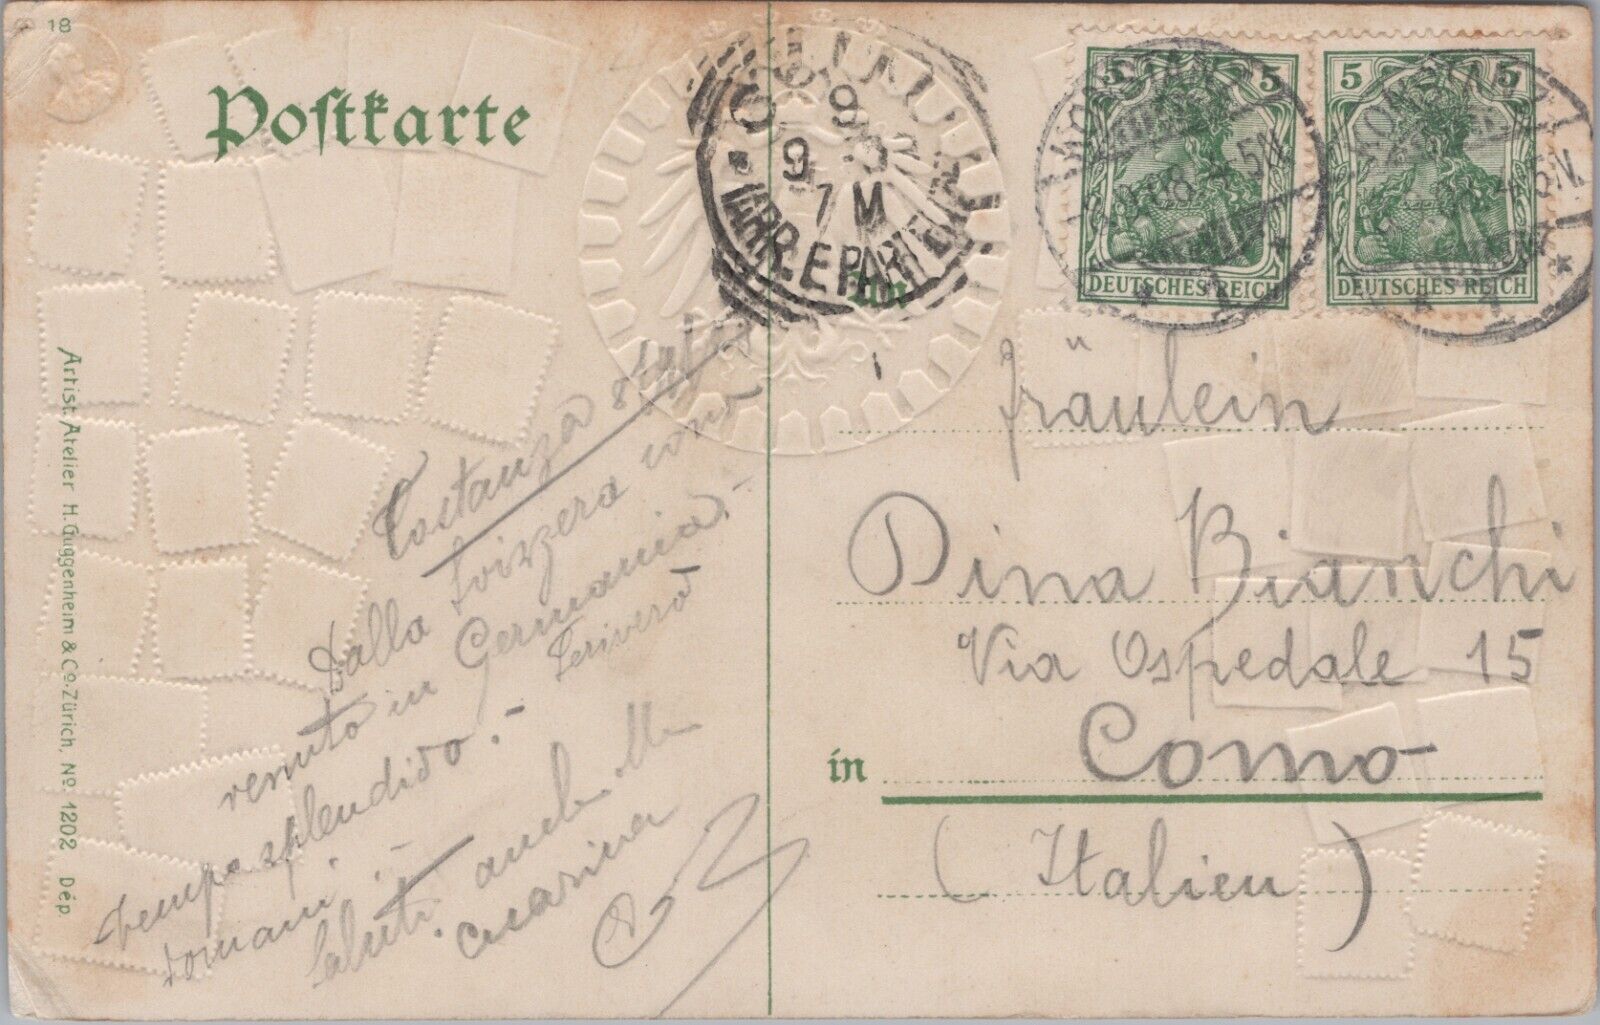 18
Postkarte
Artist. Atelier H. Guggenheim & Co. Zürich, No 1202 Dép.
COMO
9
9
7 M
ARR. E PARTENZA
An
KONSTANZ
4-5N.
* 1 *
KONSTANZ
4-5N.
* 1 *
5 5
DEUTSCHES REICH
5 5
DEUTSCHES REICH
Costanza
Dalla Svizzera sono
venuto in Germania.
Tempo splendido. – Scriverò
domani. –
Saluti anche alla
cugina
Fräulein
Dina Bianchi
Via Ospedale 15
in Como
(Italien)